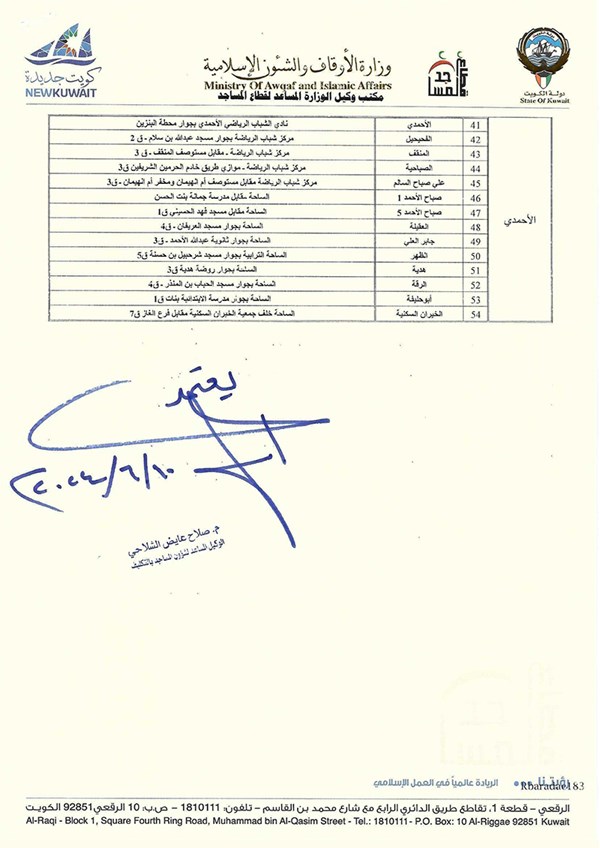 كويت جديدة
NEWKUWAIT
وزارة الأوقاف والشئون الإسلامية
Ministry Of Awqaf and Islamic Affairs
مكتب وكيل الوزارة المساعد لقطاع المساجد
قطاع المساجد
دولة الكويت
State Of Kuwait
الأحمدي
41 الأحمدي نادي الشباب الرياضي الأحمدي بجوار محطة البنزين
42 الفحيحيل مركز شباب الرياضة بجوار مسجد عبدالله بن سلام - ق 2
43 المنقف مركز شباب الرياضة - مقابل مستوصف المنقف - ق3
44 الصباحية مركز شباب الرياضة - موازي طريق خادم الحرمين الشريفين ق3
45 علي صباح السالم مركز شباب الرياضة مقابل مستوصف أم الهيمان ومخفر أم الهيمان - ق3
46 صباح الأحمد 1 الساحة مقابل مدرسة جمانة بنت الحسن
47 صباح الأحمد 5 الساحة مقابل مسجد فهد الحسيني ق1
48 العقيلة الساحة بجوار مسجد العريفان - ق4
49 جابر العلي الساحة بجوار ثانوية عبدالله الأحمد - ق3
50 الظهر الساحة الترابية بجوار مسجد شرحبيل بن حسنة ق5
51 هدية الساحة بجوار روضة هدية ق3
52 الرقة الساحة بجوار مسجد الحباب بن المنذر - ق4
53 أبوحليفة الساحة بجوار مدرسة الابتدائية بنات ق1
54 الخيران السكنية الساحة خلف جمعية الخيران السكنية مقابل فرع الغاز ق7
يعتمد
٢٠٢٤/٦/١٠
م. صلاح عايض الشلاحي
الوكيل المساعد لشؤون المساجد بالتكليف
رؤيتنا ... الريادة عالمياً في العمل الإسلامي
Rbaradae183
الرقعي - قطعة 1، تقاطع طريق الدائري الرابع مع شارع محمد بن القاسم - تلفون: 1810111 - ص.ب: 10 الرقعي 92851 الكويت
Al-Raqi - Block 1, Square Fourth Ring Road, Muhammad bin Al-Qasim Street - Tel.: 1810111- P.O. Box: 10 Al-Riggae 92851 Kuwait